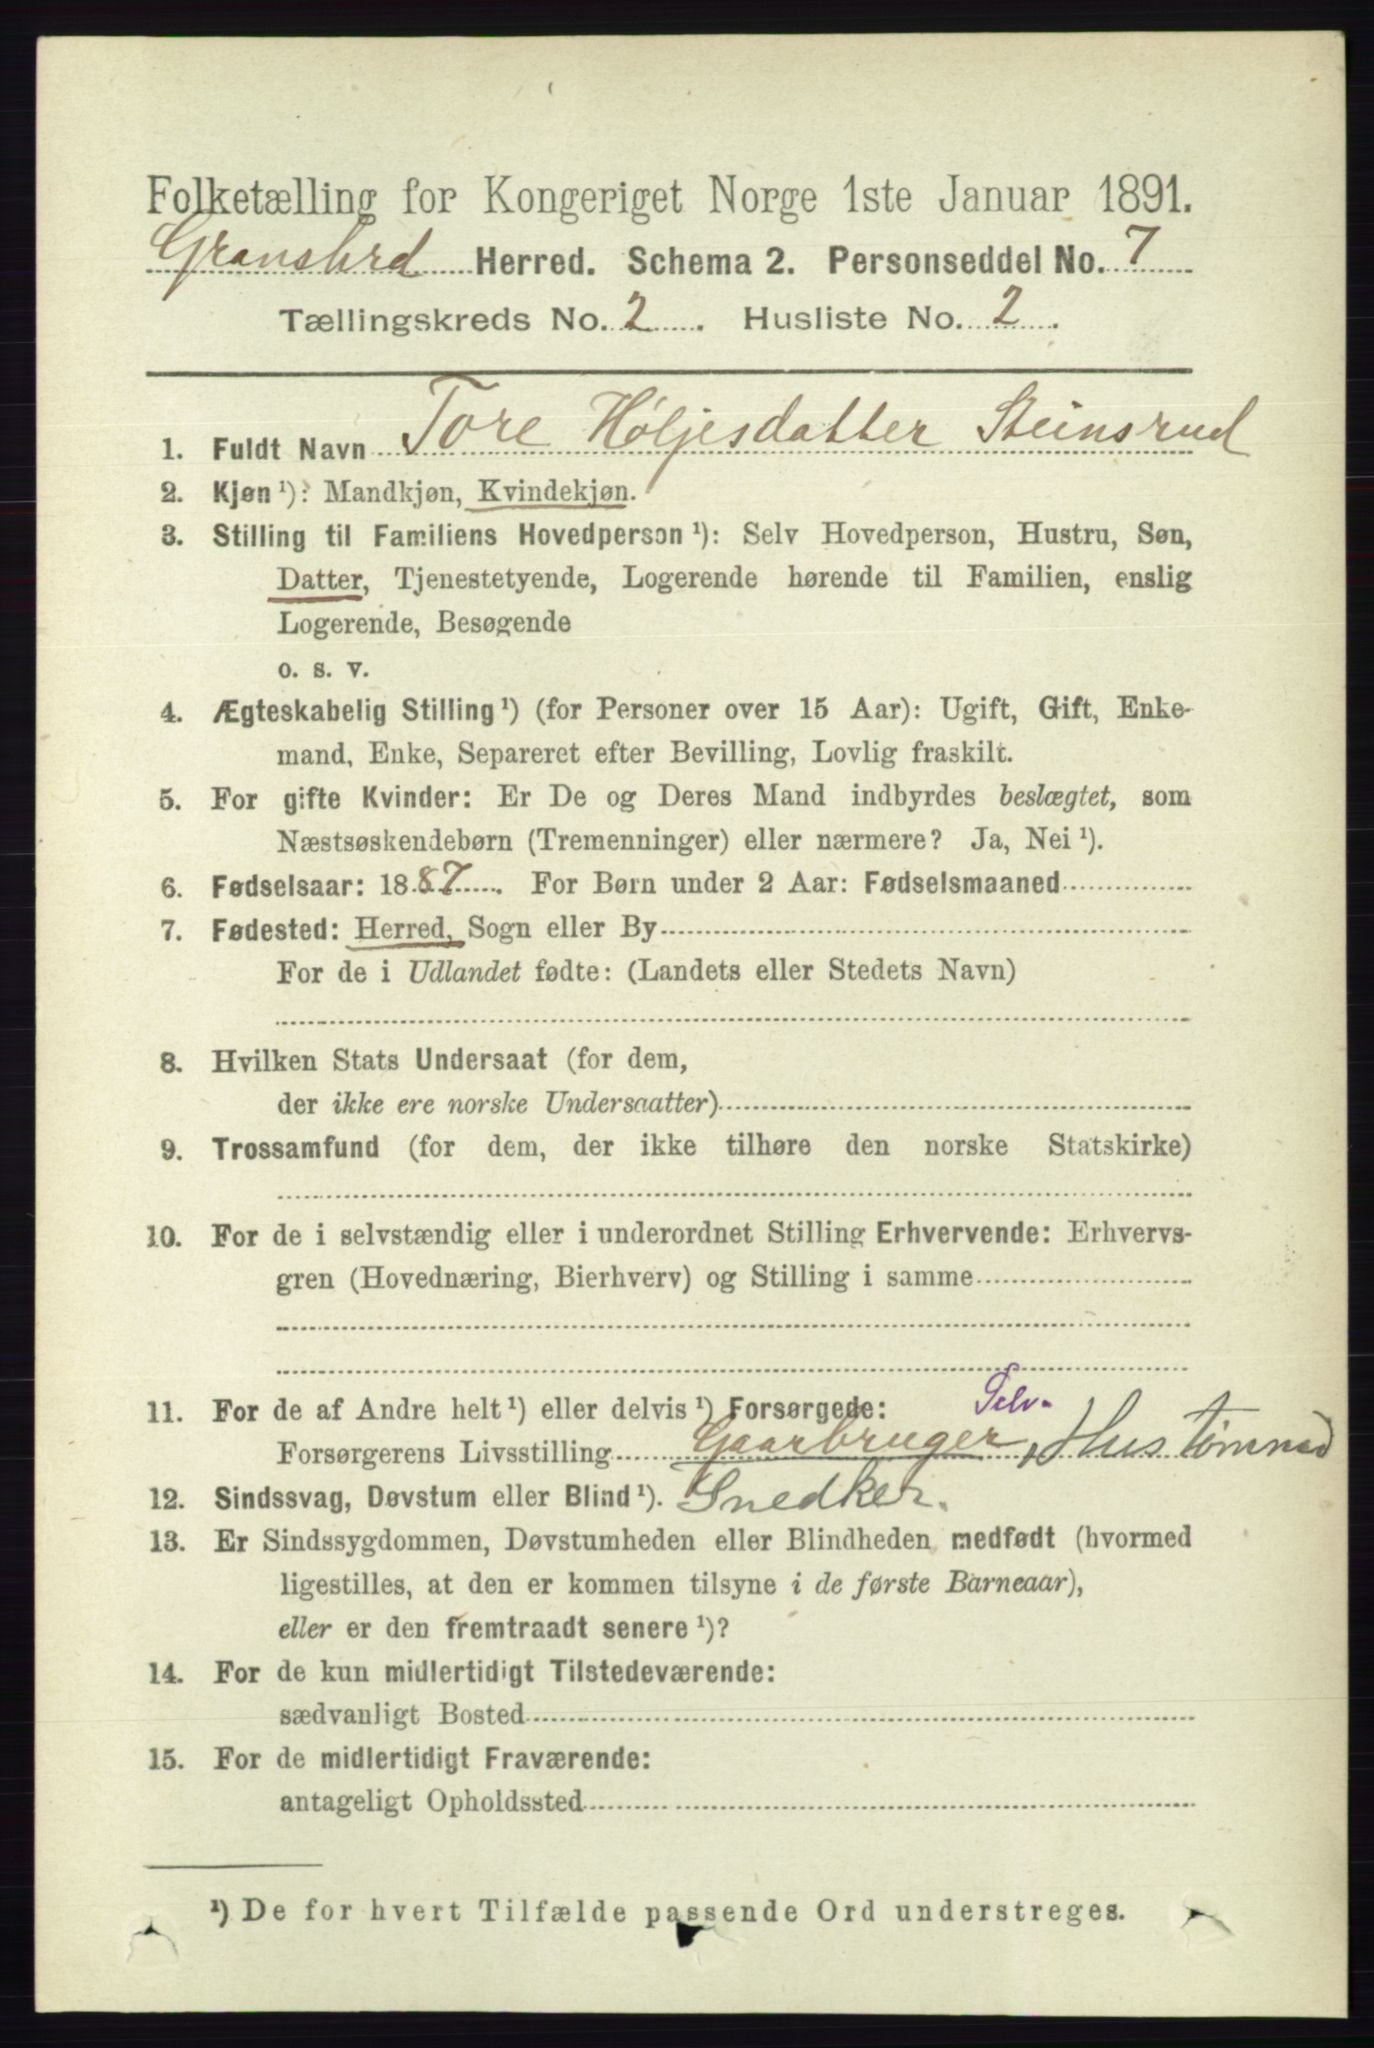 Folketælling for Kongeriget Norge 1ste Januar 1891.
Gransherd Herred. Schema 2. Personseddel No. 7
Tællingskreds No. 2. Husliste No. 2.
1. Fuldt Navn Tore Høljesdatter Steinsrud
2. Kjøn ¹): Mandkjøn, Kvindekjøn.
3. Stilling til Familiens Hovedperson ¹): Selv Hovedperson, Hustru, Søn,
Datter, Tjenestetyende, Logerende hørende til Familien, enslig
Logerende, Besøgende
o. s. v.
4. Ægteskabelig Stilling ¹) (for Personer over 15 Aar): Ugift, Gift, Enke-
mand, Enke, Separeret efter Bevilling, Lovlig fraskilt.
5. For gifte Kvinder: Er De og Deres Mand indbyrdes beslægtet, som
Næstsøskendebørn (Tremenninger) eller nærmere? Ja, Nei ¹).
6. Fødselsaar: 1887. For Børn under 2 Aar: Fødselsmaaned
7. Fødested: Herred, Sogn eller By
For de i Udlandet fødte: (Landets eller Stedets Navn)
8. Hvilken Stats Undersaat (for dem,
der ikke ere norske Undersaatter)
9. Trossamfund (for dem, der ikke tilhøre den norske Statskirke)
10. For de i selvstændig eller i underordnet Stilling Erhvervende: Erhvervs-
gren (Hovednæring, Bierhverv) og Stilling i samme
11. For de af Andre helt ¹) eller delvis ¹) Forsørgede: Selv.
Forsørgerens Livsstilling Gaarbruger, Hustømnad
12. Sindssvag, Døvstum eller Blind ¹). Snedker.
13. Er Sindssygdommen, Døvstumheden eller Blindheden medfødt (hvormed
ligestilles, at den er kommen tilsyne i de første Barneaar),
eller er den fremtraadt senere ¹)?
14. For de kun midlertidigt Tilstedeværende:
sædvanligt Bosted
15. For de midlertidigt Fraværende:
antageligt Opholdssted
¹) De for hvert Tilfælde passende Ord understreges.